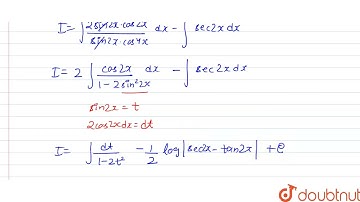 I = ∫ 2sin2x·cos2x / sin2x·cos4x dx − ∫ sec2x dx
I = 2 ∫ cos2x / 1−2sin²2x dx − ∫ sec2x dx
sin2x = t
2cos2xdx = dt
I = ∫ dt / 1−2t² − 1/2 log|sec2x − tan2x| + C
doubtnut